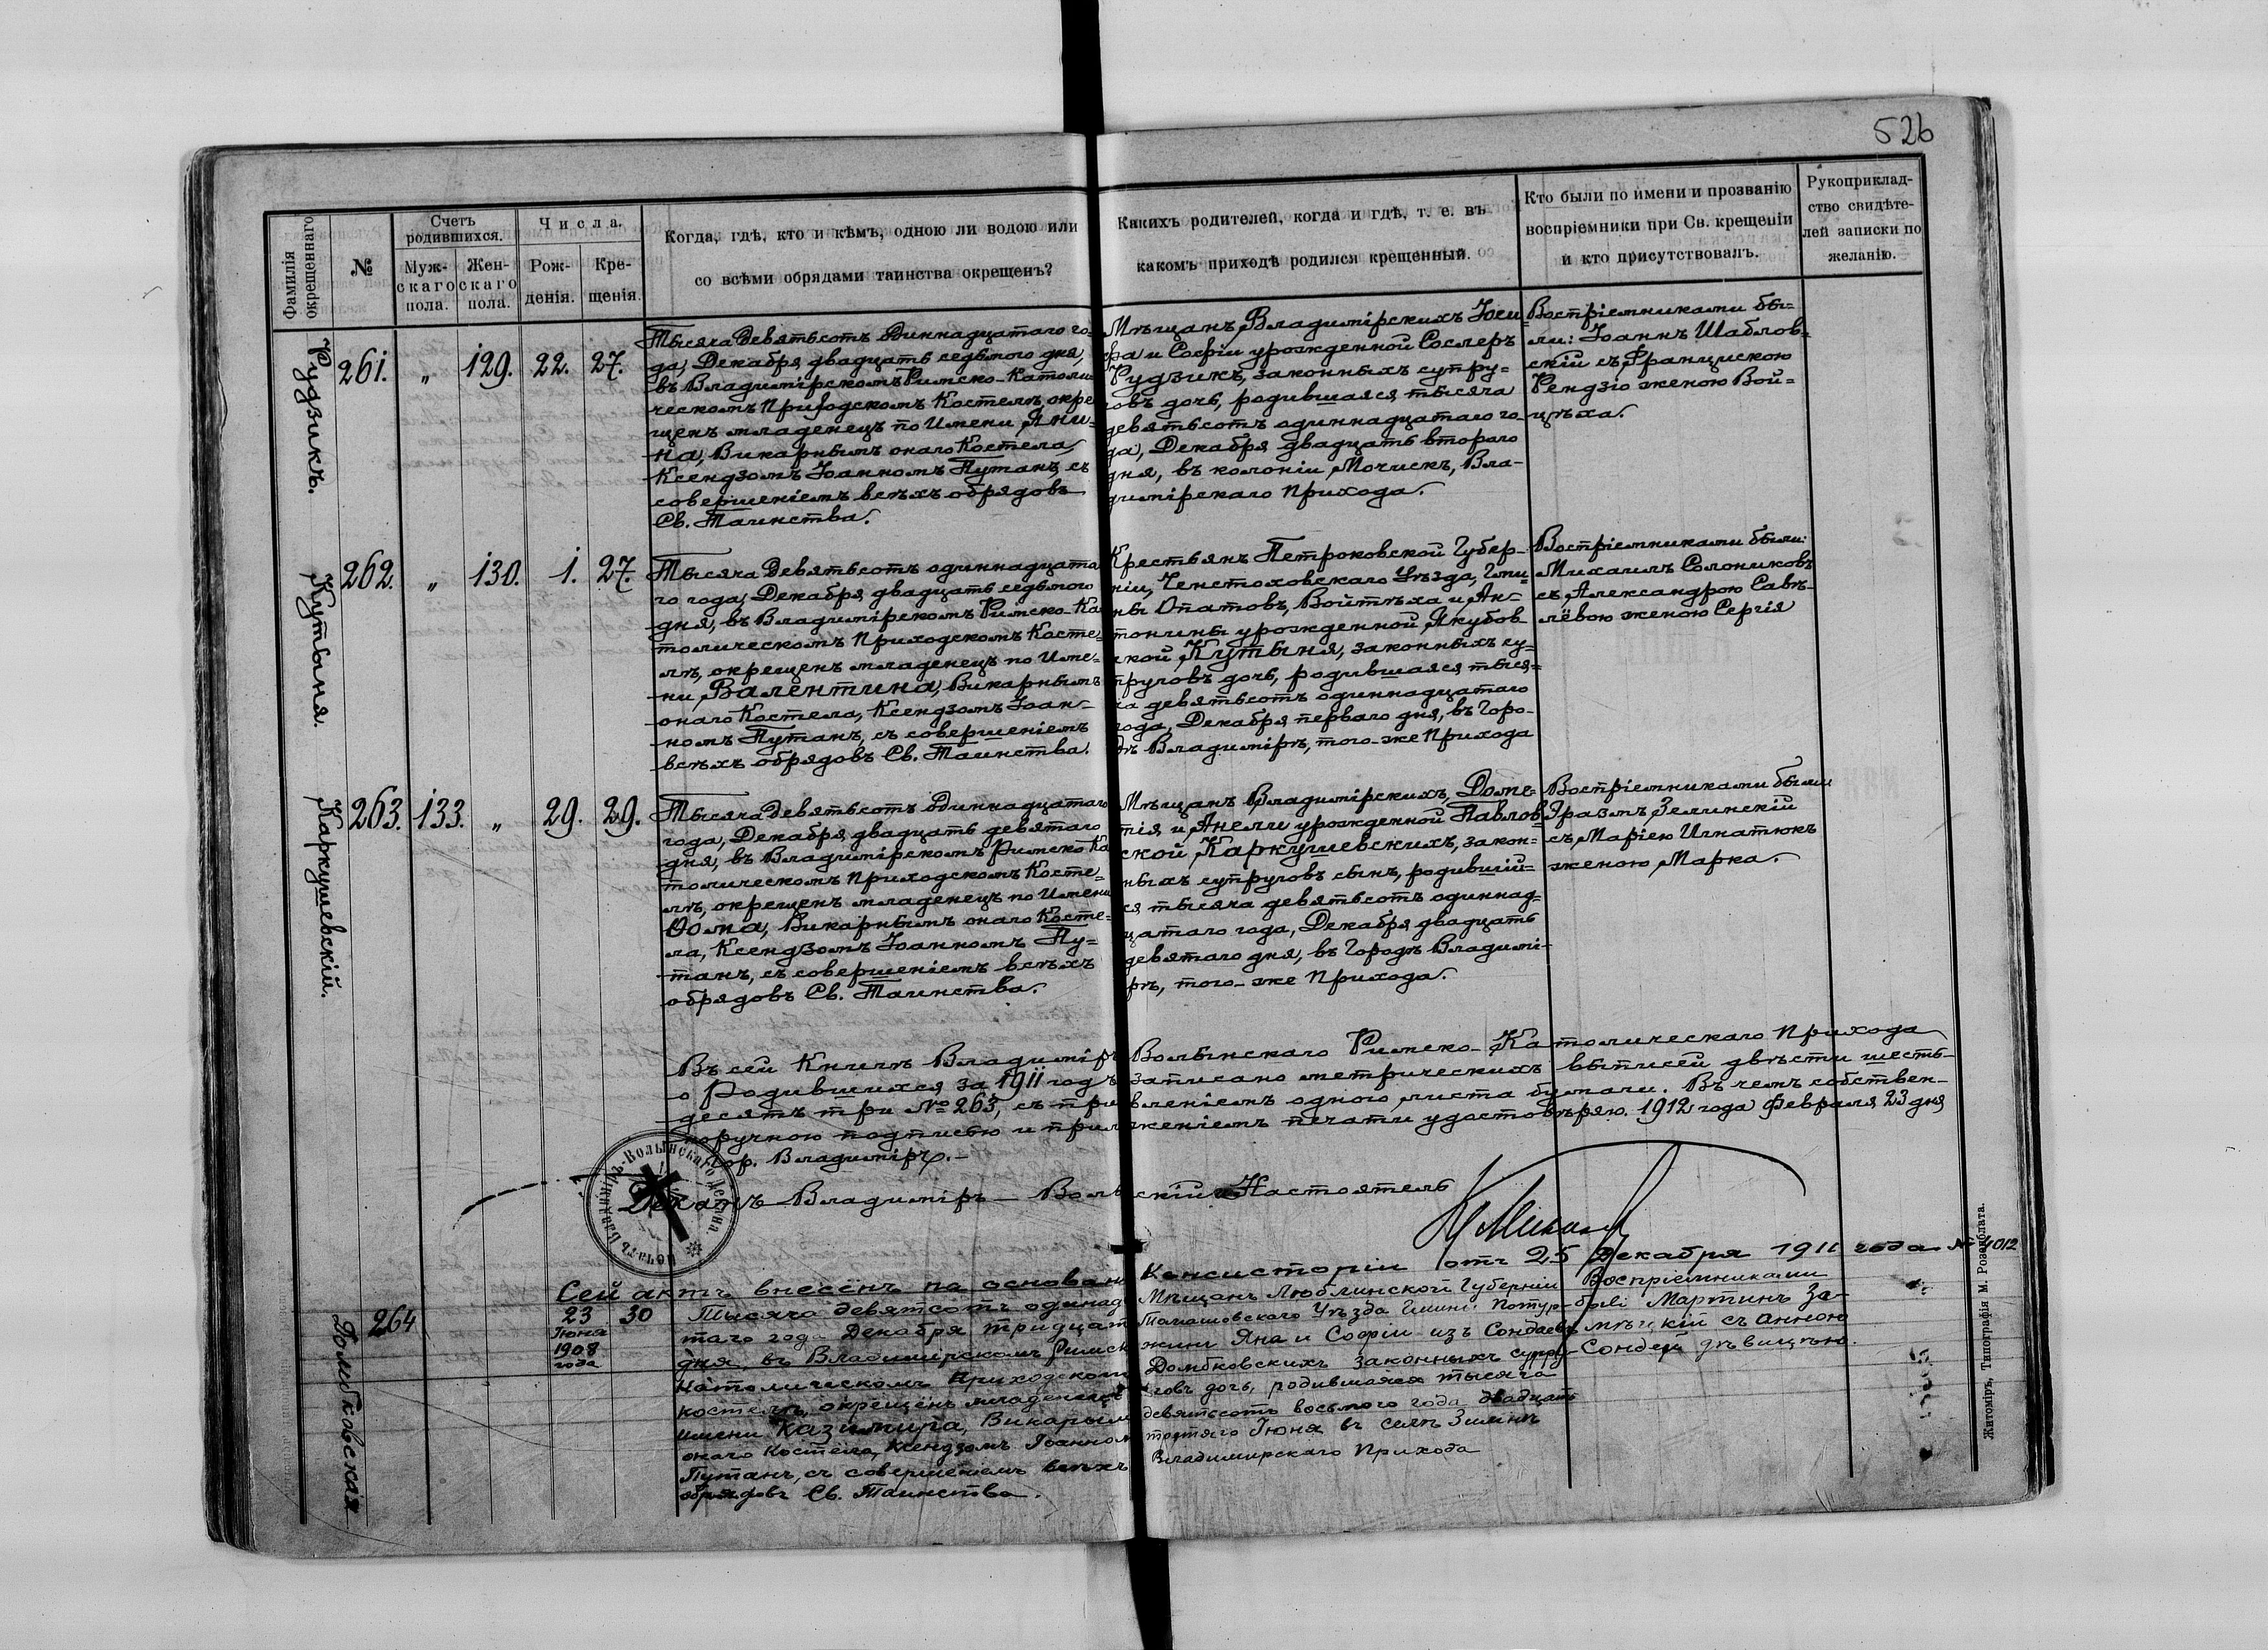 526
Фамилія
окрещеннаго
№
Счетъ
родившихся.
Муж-
скаго
пола.
Жен-
скаго
пола.
Числа.
Рож-
денія.
Кре-
щенія.
Когда, гдѣ, кто и кѣмъ, одною ли водою или
со всѣми обрядами таинства окрещенъ?
Какихъ родителей, когда и гдѣ, т. е. въ
какомъ приходѣ родился крещенный.
Кто были по имени и прозванію
воспріемники при Св. крещеніи
и кто присутствовалъ.
Рукоприклад-
ство свидѣте-
лей записки по
желанію.
Рудзикъ.
261. „ 129. 22. 27.
Тысяча Девятьсотъ Одиннадцатаго го-
да, Декабря двадцать седьмого дня,
въ Владимірскомъ Римско-Католи
ческомъ Приходскомъ Костелѣ, окре
щенъ младенецъ по Имени Яни-
на, Викарнымъ онаго Костела,
Ксендзомъ Іоанномъ Путанъ, съ
совершеніемъ всѣхъ обрядовъ
Св. Таинства.
Мѣщанъ Владимірскихъ Іоси
фа и Софіи урожденной Сослеръ
Рудзикъ, законныхъ супру-
овъ дочь, родившаяся тысяча
девятьсотъ одиннадцатаго го-
да, Декабря двадцать второго
дня, въ колоніи Мочискъ, Вла-
димірскаго Прихода.
Воспріемниками бы-
ли: Іоаннъ Шаблов-
скій съ Францискою
Рендзіо женою Вой-
цѣха.
Кутыня.
262. „ 130. 1. 27.
Тысяча Девятьсотъ одиннадцата
го года, Декабря двадцать седьмого
дня, въ Владимірскомъ Римско-Ка
толическомъ Приходскомъ Косте-
лѣ, окрещенъ младенецъ по Име-
ни Валентина, Викарнымъ
онаго Костела, Ксендзомъ Іоан-
номъ Путанъ, съ совершеніемъ
всѣхъ обрядовъ Св. Таинства.
Крестьянъ Петроковской Губер-
ніи, Ченстоховскаго Уѣзда, Гми-
ны Опатовъ, Войтѣха и Ан-
тонины урожденной Якубов
ской Кутыня, законныхъ су-
пруговъ дочь, родившаяся тыся-
ча девятьсотъ одиннадцатаго
года, Декабря перваго дня, въ Горо-
дѣ Владимірѣ, того-же Прихода
Воспріемниками были:
Михаилъ Солониковъ
съ Александрою Савѣ-
лёвою женою Сергія
Каркушевскій.
263. 133. „ 29. 29.
Тысяча Девятьсотъ Одиннадцатаго
года, Декабря двадцать девятаго
дня, въ Владимірскомъ Римско Ка
толическомъ Приходскомъ Косте-
лѣ, окрещенъ младенецъ по Имени
Ѳома, Викарнымъ онаго Косте-
ла, Ксендзомъ Іоанномъ Пу-
танъ, съ совершеніемъ всѣхъ
обрядовъ Св. Таинства.
Мѣщанъ Владимірскихъ, Доме-
тія и Анели урожденной Павлов
ской Каркушевскихъ, закон-
ныхъ супруговъ сынъ, родившій-
ся тысяча девятьсотъ одиннад-
цатаго года, Декабря двадцать
девятаго дня, въ Городѣ Владимі-
рѣ, того-же Прихода.
Воспріемниками были
Эразмъ Зелинскій
съ Маріею Игнатюкъ
женою Марка.
Въ сей Книгѣ Владиміръ Волынскаго Римско-Католическаго Прихода
о Родившихся за 1911 годъ записано метрическихъ выписей двѣсти шесть-
десятъ три № 263, съ при вленіемъ одного листа бумаги. Въ чемъ собствен-
норучною подписью и приложеніемъ печати удостовѣряю. 1912 года Февраля 23 дня
Гор. Владиміръ.
Деканъ Владиміръ - Вол скій Настоятель
Печать Владиміръ-Волынскаго Декана
Сей актъ внесёнъ на основан Консисторіи отъ 25 Декабря 1911 года № 4012
Домбковская
264
23
Іюня
1908
года
30
Тысяча девятсотъ одинад
таго года Декабря тридцат
дня, въ Владимирскомъ Римск
Католическомъ Приходском
костелѣ, окрещёнъ младенецъ
имени Казимира, Викарым
онаго Костела, Ксендзомъ Іоанном
Путанъ, съ совершеніемъ всѣхъ
обрядовъ Св. Таинства.
Мѣщанъ Люблинской Губерніи
Томашовскаго Уѣзда Гмины Потур-
жинъ Яна и Софіи изъ Сондаевъ
Домбковскихъ законныхъ супру-
говъ дочь, родившаяся тысяча
девятьсотъ восьмого года двадцать
третяго Іюня въ селѣ Зимнѣ
Владимирскаго Прихода
Воспріемниками
были Мартинъ За-
мѣцкій съ Анною
Сондей дѣвицею.
Житоміръ, Типографія М. Розенблата.